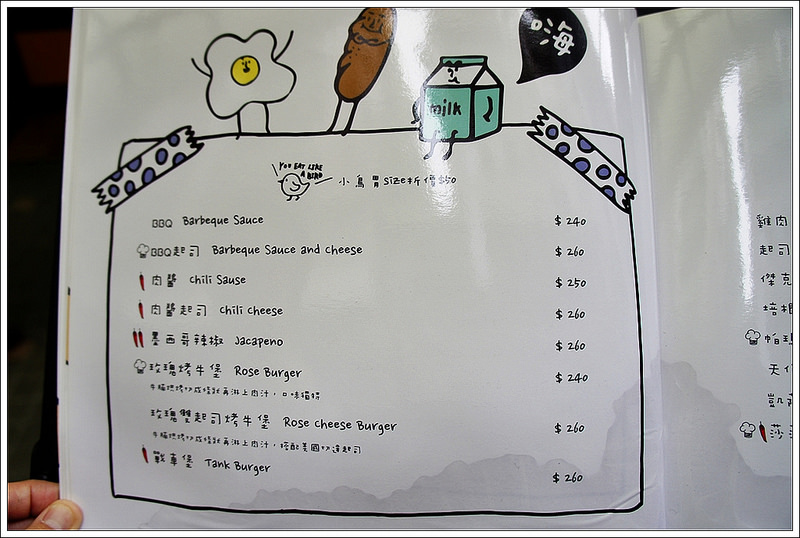 嗨
milk
YOU EAT LIKE
A BIRD
小鳥胃size折價$50
BBQ Barbeque Sauce $240
BBQ起司 Barbeque Sauce and Cheese $260
肉醬 Chili Sause $250
肉醬起司 Chili Cheese $260
墨西哥辣椒 Jacapeno $260
玫瑰烤牛堡 Rose Burger $240
牛腩烘烤切成條狀再淋上肉汁，口味獨特
玫瑰雙起司烤牛堡 Rose Cheese Burger $260
牛腩烘烤切成條狀再淋上肉汁，搭配美國切達起司
戰車堡 Tank Burger $260
雞肉
起司
傑克
培根
帕瑪
天
凱
莎